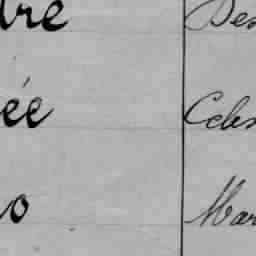 dre Des
ée Celes
o Mar